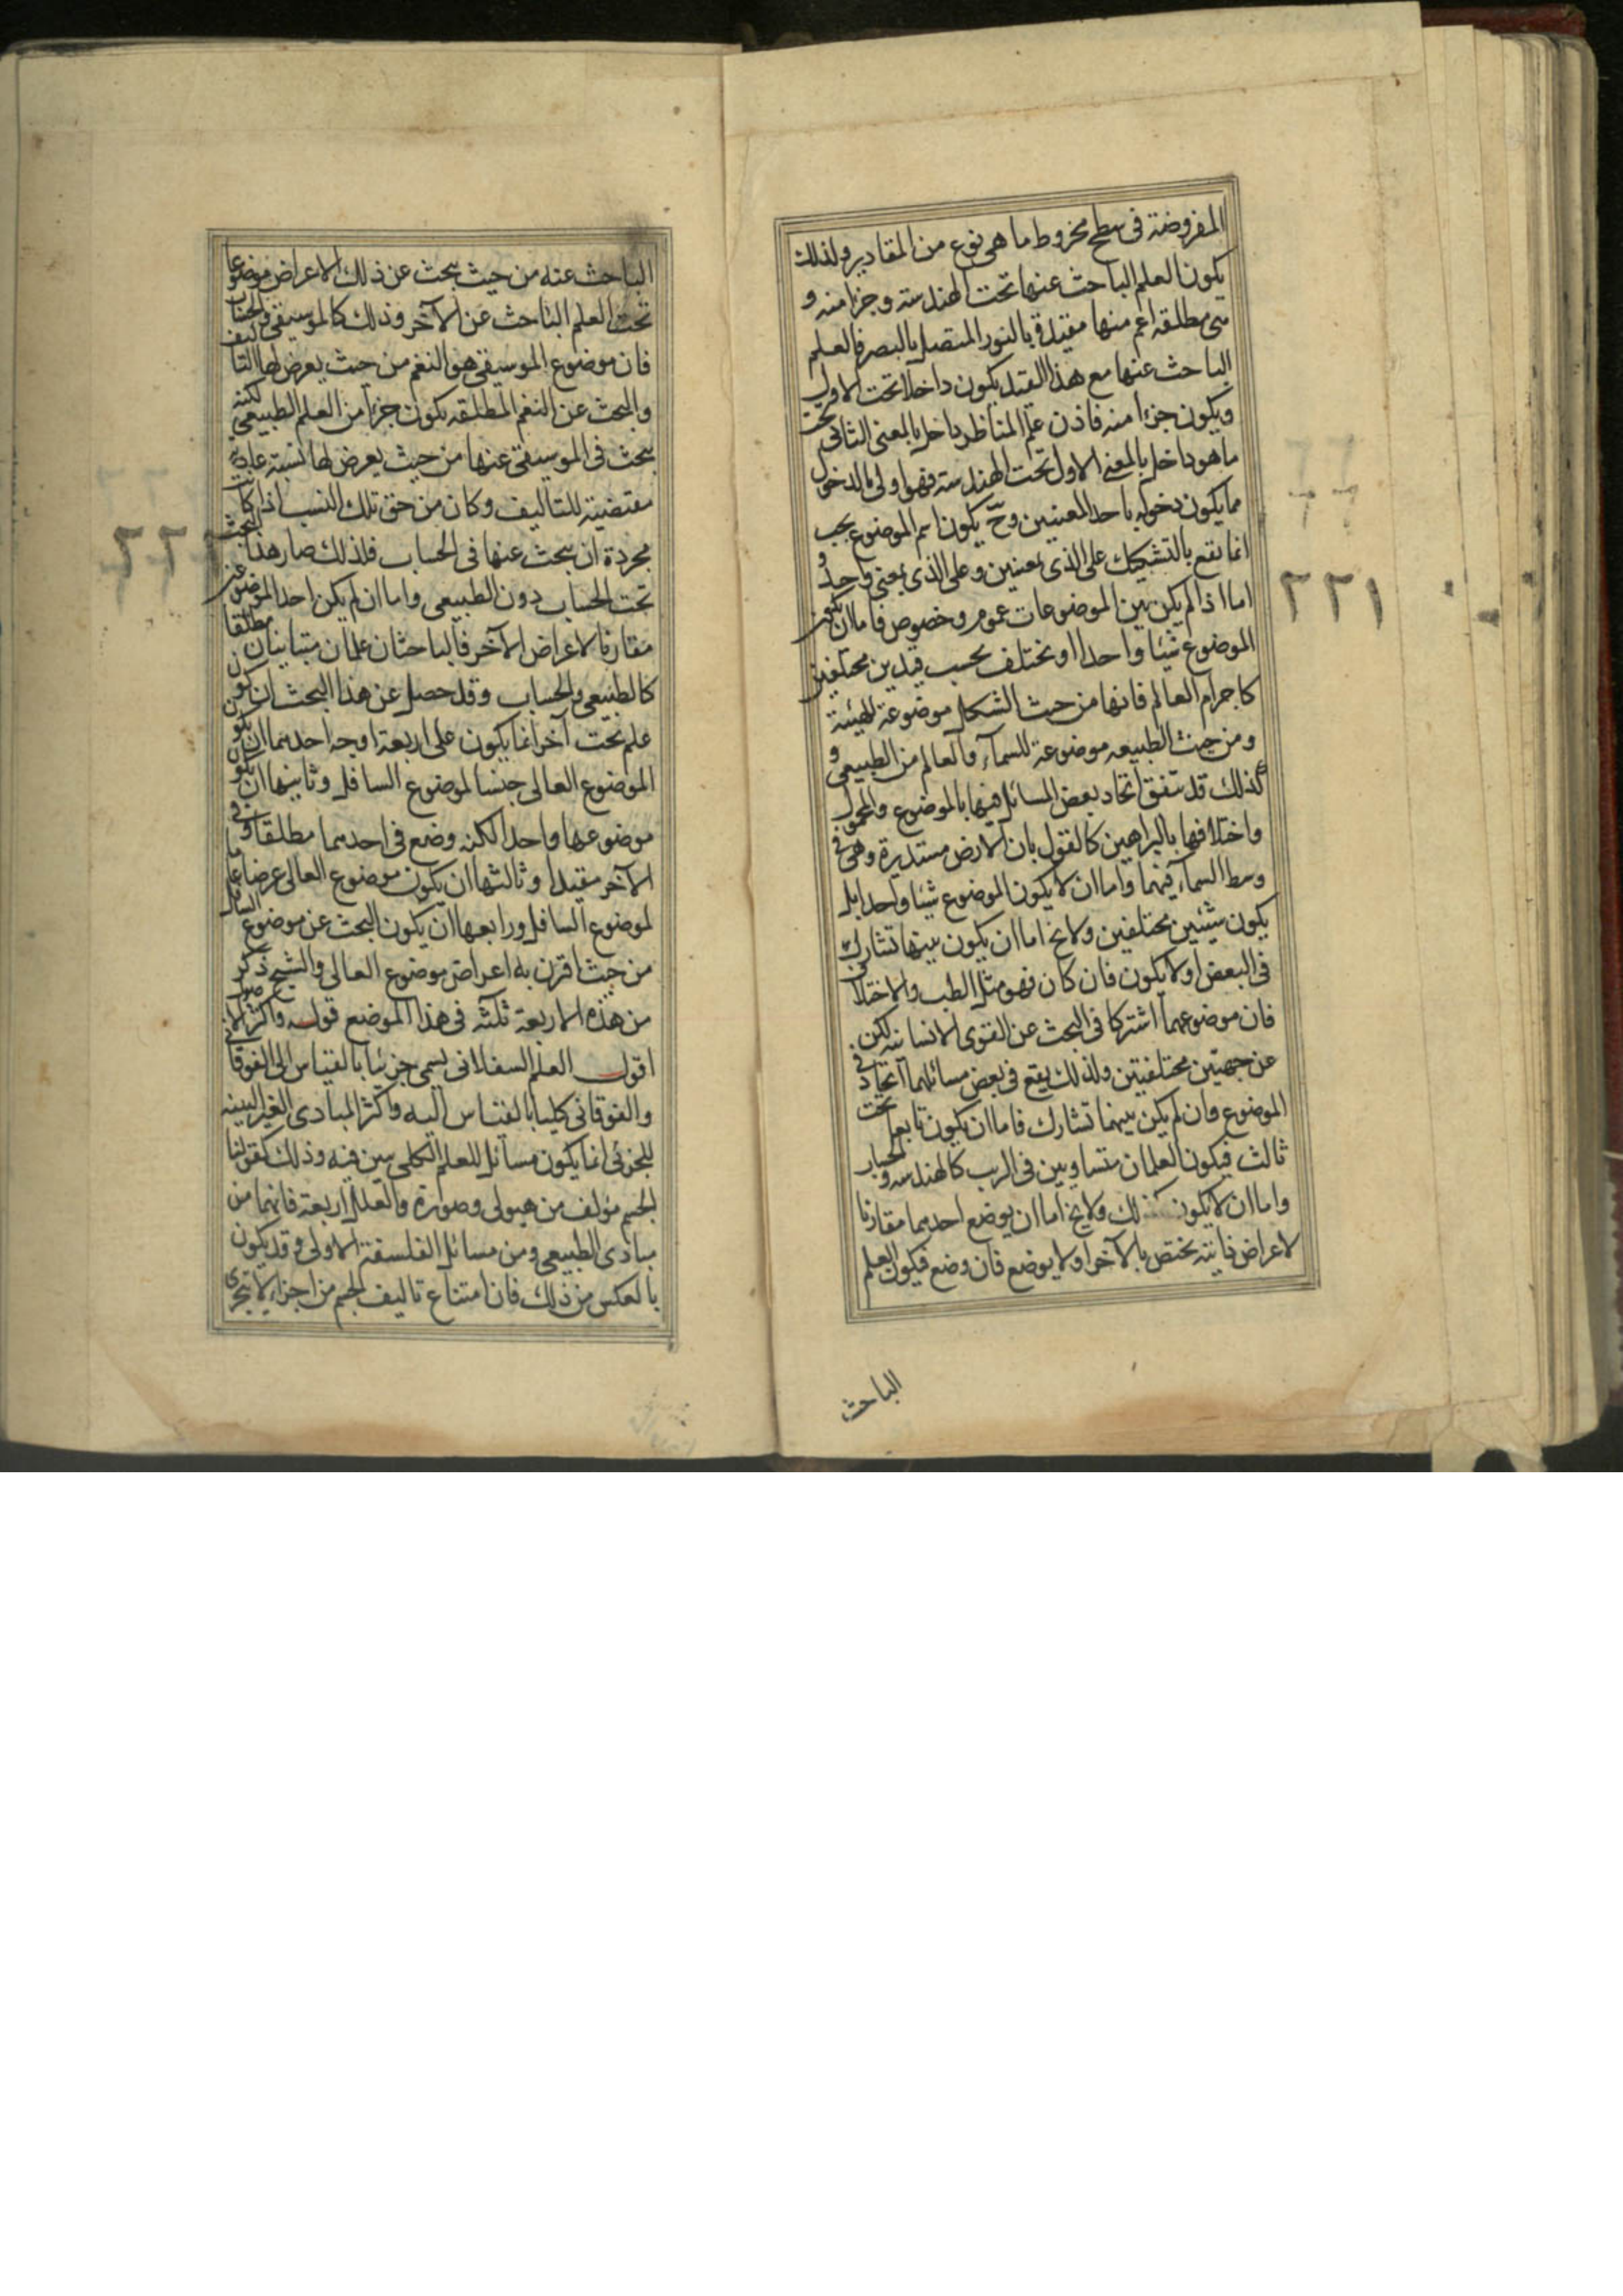 المفروضة فى سطح مخروط ما هى نوع من المقادير ولذلك
يكون العلم الباحث عنها تحت الهندسة وجزءا منه و
هى مطلقه اعم منها مقيدة بالنور المتصل بالبصر فالعلم
الباحث عنها مع هذا القيد يكون داخلا تحت الاول
ويكون جزءا منه فاذن علم المناظر داخل بالمعنى الثانى تحت
ما هو داخل بالمعنى الاول تحت الهندسة فهو اولى بالدخول
مما يكون دخوله باحد المعنيين وح يكون اسم الموضوع بحب
انما يقع بالتشكيك على الذى بمعنيين وعلى الذى بمعنى واحد و
اما اذا لم يكن بين الموضوعات عموم وخصوص فاما ان يكون
الموضوع شيئا واحدا او يختلف بحسب قيدين مختلفين
كاجرام العالم فانها من حيث الشكل موضوعة للهيئة
ومن حيث الطبيعه موضوعة للسماء والعالم من الطبيعى و
لذلك قد يتفق اتحاد بعض المسائل فيهما بالموضوع والمحمول
واختلافها بالبراهين كالقول بان الارض مستديرة وهى فى
وسط السماء فيهما واما ان لا يكون الموضوع شيئا واحدا بل
يكون شيئين مختلفين ولا يخ اما ان يكون بينهما تشارك
فى البعض او لا يكون فان كان فهو مثل الطب والاخلاق
فان موضوعهما اشتركا فى البحث عن القوى الانسانيه لكن
عن جهتين مختلفتين ولذلك يقع فى بعض مسائلهما اتحاد فى
الموضوع وان لم يكن بينهما تشارك فاما ان يكون تابعا تحت
ثالث فيكون العلمان متساويين فى الرتب كالهندسه والحساب
واما ان لا يكون كذلك ولا يخ اما ان يوضع احدهما مقارنا
لاعراض ذاتيه يختص بالآخر او لا يوضع فان وضع فيكون العلم
الباحث
٢٢١
الباحث عنه من حيث يبحث عن ذلك الاعراض موضوعا
تحت العلم الباحث عن الآخر وذلك كالموسيقى والحساب
فان موضوع الموسيقى هو النغم من حيث يعرض لها التاليف
والبحث عن النغم المطلقه يكون جزءا من العلم الطبيعى لكنه
يبحث فى الموسيقى عنها من حيث يعرض لها نسبة عددية
مقتضية للتاليف وكان من حق تلك النسب اذا كانت
مجردة ان يبحث عنها فى الحساب فلذلك صار هذا البحث
تحت الحساب دون الطبيعى واما ان لم يكن احد الموضوعين
مقارنا لاعراض الآخر فالباحثان علمان متباينان مطلقا
كالطبيعى والحساب وقد حصل عن هذا البحث ان كون
علم تحت آخر انما يكون على اربعة اوجه احدهما ان يكون
الموضوع العالى جنسا لموضوع السافل وثانيها ان يكون
موضوعها واحدا لكنه وضع فى احدهما مطلقا وفى
الآخر مقيدا وثالثها ان يكون موضوع العالى عرضا عاما
لموضوع السافل ورابعها ان يكون البحث عن موضوع السافل
من حيث اقترن به اعراض موضوع العالى والشيخ ذكر
من هذه الاربعة ثلثه فى هذا الموضع قوله واكثر الاصول
اقول العلم السفلانى يسمى جزئيا بالقياس الى الفوقانى
والفوقانى كليا بالقياس اليه واكثر المبادى الغير البينه
للجزئى انما يكون مسائل للعلم الكلى يبين فيه وذلك كقولنا
الجسم مؤلف من هيولى وصورة والعلل اربعة فانهما من
مبادى الطبيعى ومن مسائل الفلسفة الاولى وقد يكون
بالعكس من ذلك فان امتناع تاليف الجسم من اجزاء لا تتجزى
٢٢٢